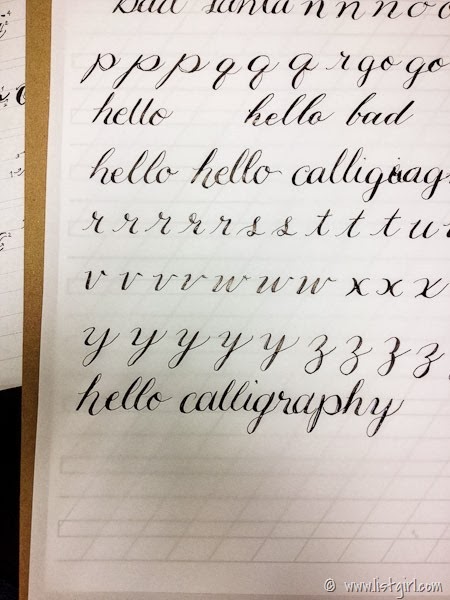 bad santa n n n o o
p p p p q q q r go go
hello hello bad
hello hello
r r r r r s s t t t u
v v v v w w w x x x
y y y y y z z z z
hello calligraphy
© www.listgirl.com